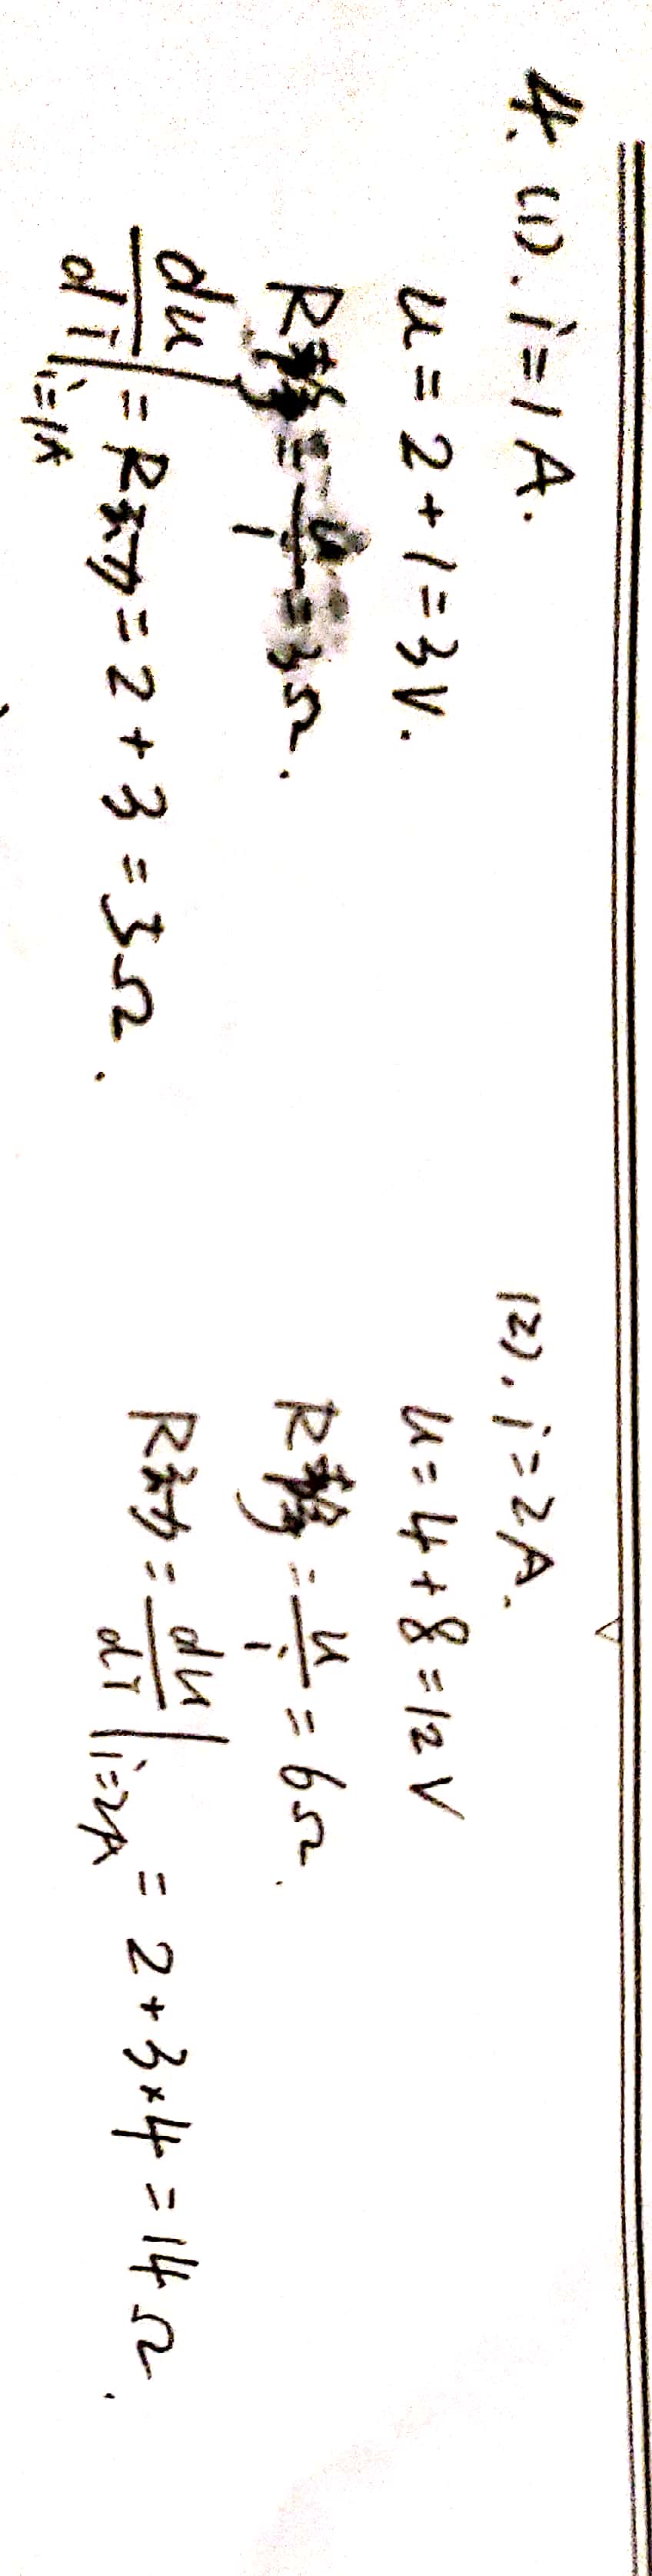 4. (1). i=1A.
u=2+1=3V.
R静=u/i=3Ω.
du/di|i=1A=R动=2+3=5Ω.
(2). i=2A.
u=4+8=12V
R静=u/i=6Ω.
R动=du/di|i=2A=2+3×4=14Ω.